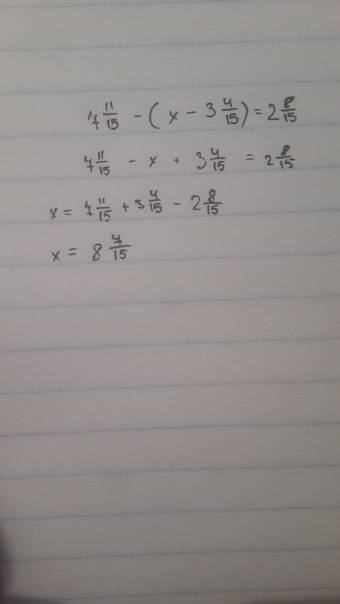 7 11/15 - (x - 3 4/15) = 2 8/15
7 11/15 - x + 3 4/15 = 2 8/15
x = 7 11/15 + 3 4/15 - 2 8/15
x = 8 7/15